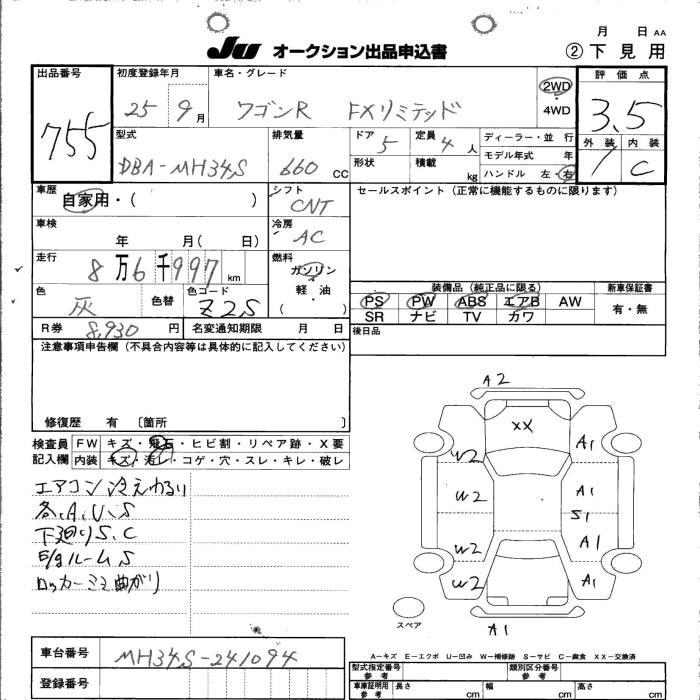 月 日 AA
JU オークション出品申込書 ② 下見用
出品番号 初度登録年月 車名・グレード 評価点
755 25 9月 ワゴンR FXリミテッド 2WD・4WD 3.5
外装 内装
1 C
型式 排気量 ドア 定員 ディーラー・並行
DBA-MH34S 660 CC 5 4人 モデル年式 年
形状 積載 kg ハンドル 左・右
車歴 シフト セールスポイント（正常に機能するものに限ります）
自家用・( ) CNT
車検 冷房
年 月( 日) AC
走行 燃料
8万6千997km ガソリン
軽・油
( )
色 色替 色コード
灰 Z2S
装備品（純正品に限る） 新車保証書
PS PW ABS エアB AW 有・無
SR ナビ TV カワ
R券 8,930円 名変通知期限 月 日 後日品
注意事項申告欄（不具合内容等は具体的に記入してください）
修復歴 有 〔箇所 〕
検査員記入欄 FW キズ・飛石・ヒビ割・リペア跡・X要
内装 キズ・汚レ・コゲ・穴・スレ・キレ・破レ
エアコン冷えわるい
各、A、U、S
下廻りS、C
E/gルームS
ロッカーミミ曲がり
A2
XX
W2 A1
W2 A1
S1
W2 A1
W2 A1
スペア
A1
A-キズ E-エクボ U-凹み W-補修跡 S-サビ C-腐食 XX-交換済
車台番号 MH34S-241094
登録番号
型式指定番号 参考 類別区分番号 参考
車庫証明用 参考 長さ cm 幅 cm 高さ cm